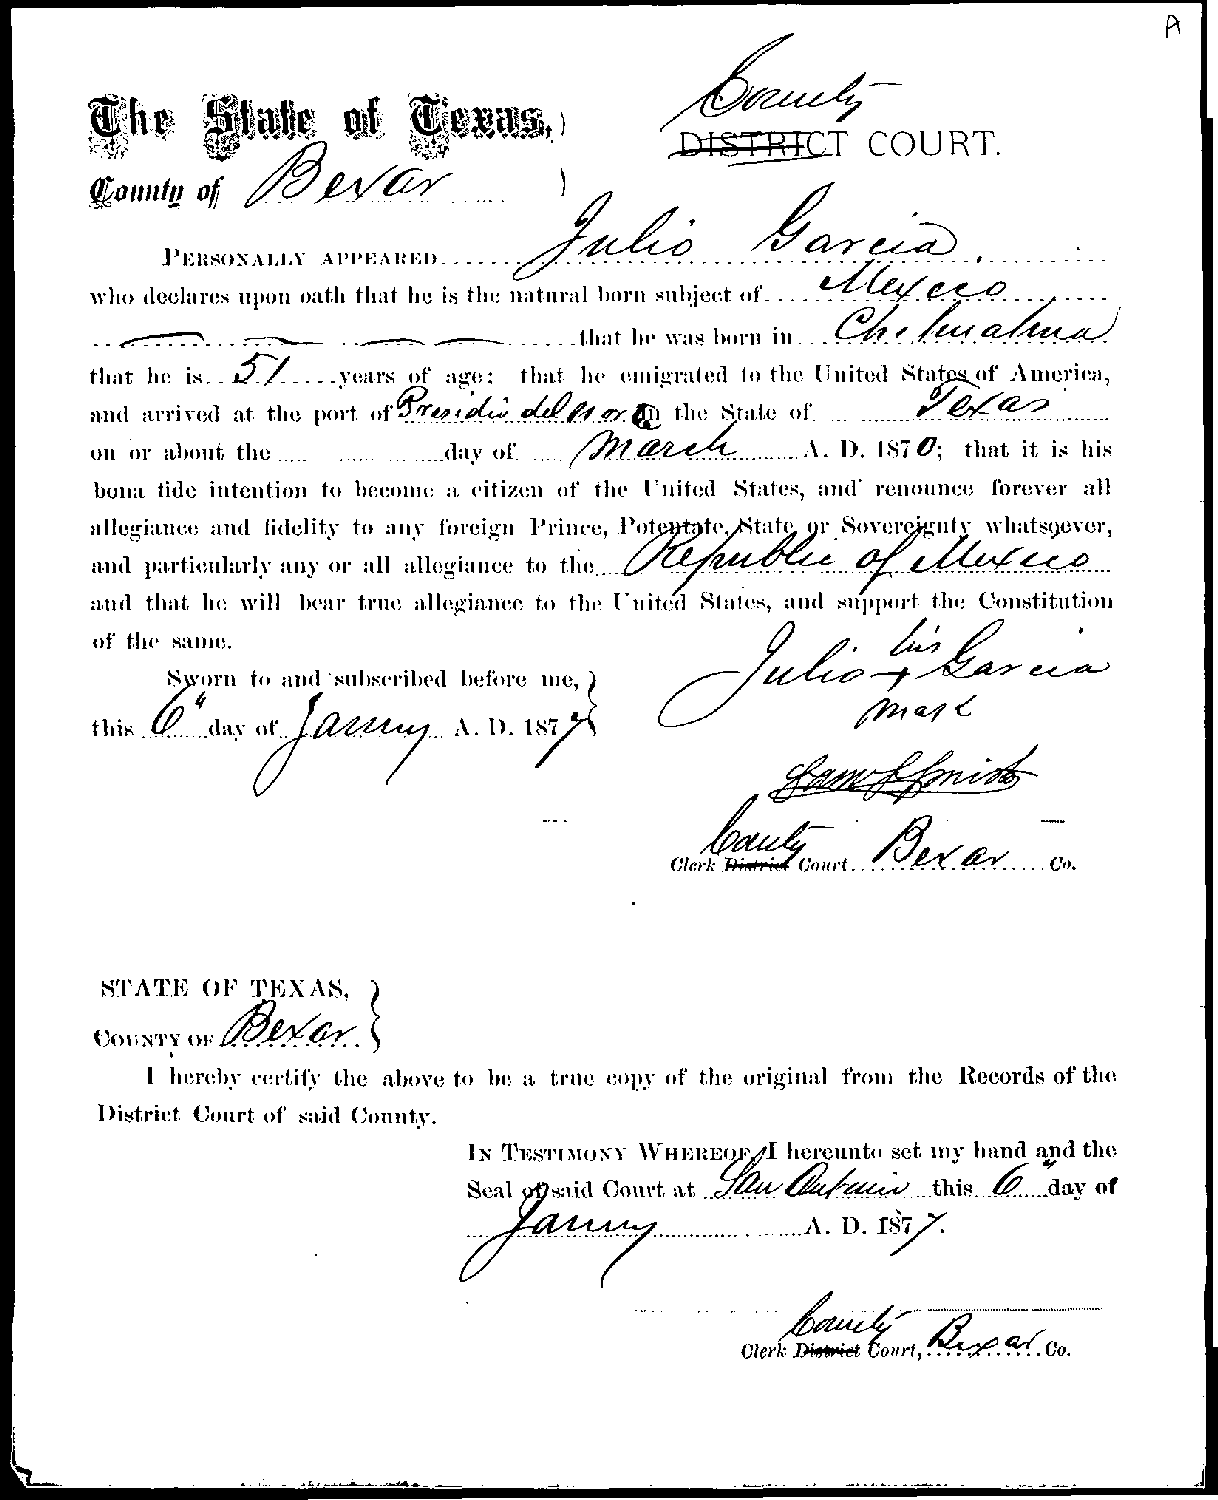 A
County
The State of Texas,
DISTRICT COURT.
County of Bexar
PERSONALLY APPEARED Julio Garcia,
who declares upon oath that he is the natural born subject of Mexico
that he was born in Chihuahua
that he is 51 years of age: that he emigrated to the United States of America,
and arrived at the port of Presidio del Norte in the State of Texas
on or about the day of March A. D. 1870; that it is his
bona fide intention to become a citizen of the United States, and renounce forever all
allegiance and fidelity to any foreign Prince, Potentate, State or Sovereignty whatsoever,
and particularly any or all allegiance to the Republic of Mexico
and that he will bear true allegiance to the United States, and support the Constitution
of the same.
his
Julio + Garcia
mark
Sworn to and subscribed before me,
this 6" day of Janny A. D. 1877
Sam S Smith
County
Clerk District Court Bexar Co.
STATE OF TEXAS,
COUNTY OF Bexar
I hereby certify the above to be a true copy of the original from the Records of the
District Court of said County.
IN TESTIMONY WHEREOF, I hereunto set my hand and the
Seal of said Court at San Antonio this 6" day of
Janny A. D. 1877.
County
Clerk District Court, Bexar Co.